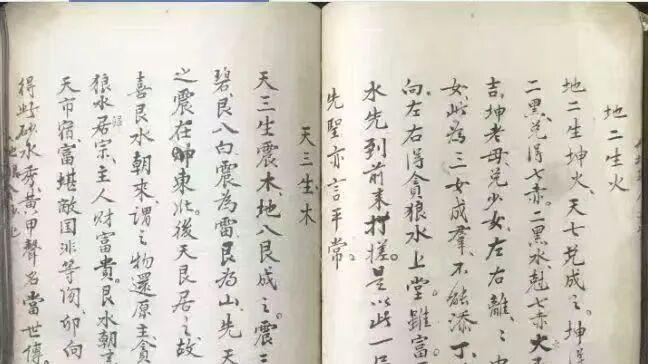 地二生火
地二生坤火、天七兑成之。坤
二黑、兑得七赤。二黑水、尅七赤火
吉、坤老母、兑少女、左右離、之中
女、此為三女成羣、不能添丁、
向、左右得貪狼水上堂。雖富
水先到前来打搓。是以此一
先聖亦言平常。
天三生木
天三生震木、地八艮成之。震三
碧、艮八白、震為雷、艮為山、先天
之震在東北。後天艮居之、故
喜艮水朝來、謂之物還原主貪
狼水居宗、主人財富貴。艮水朝
天市宿富堪敵国非等闲、卯向
得好砂水秀、黄甲聲名當世傳。